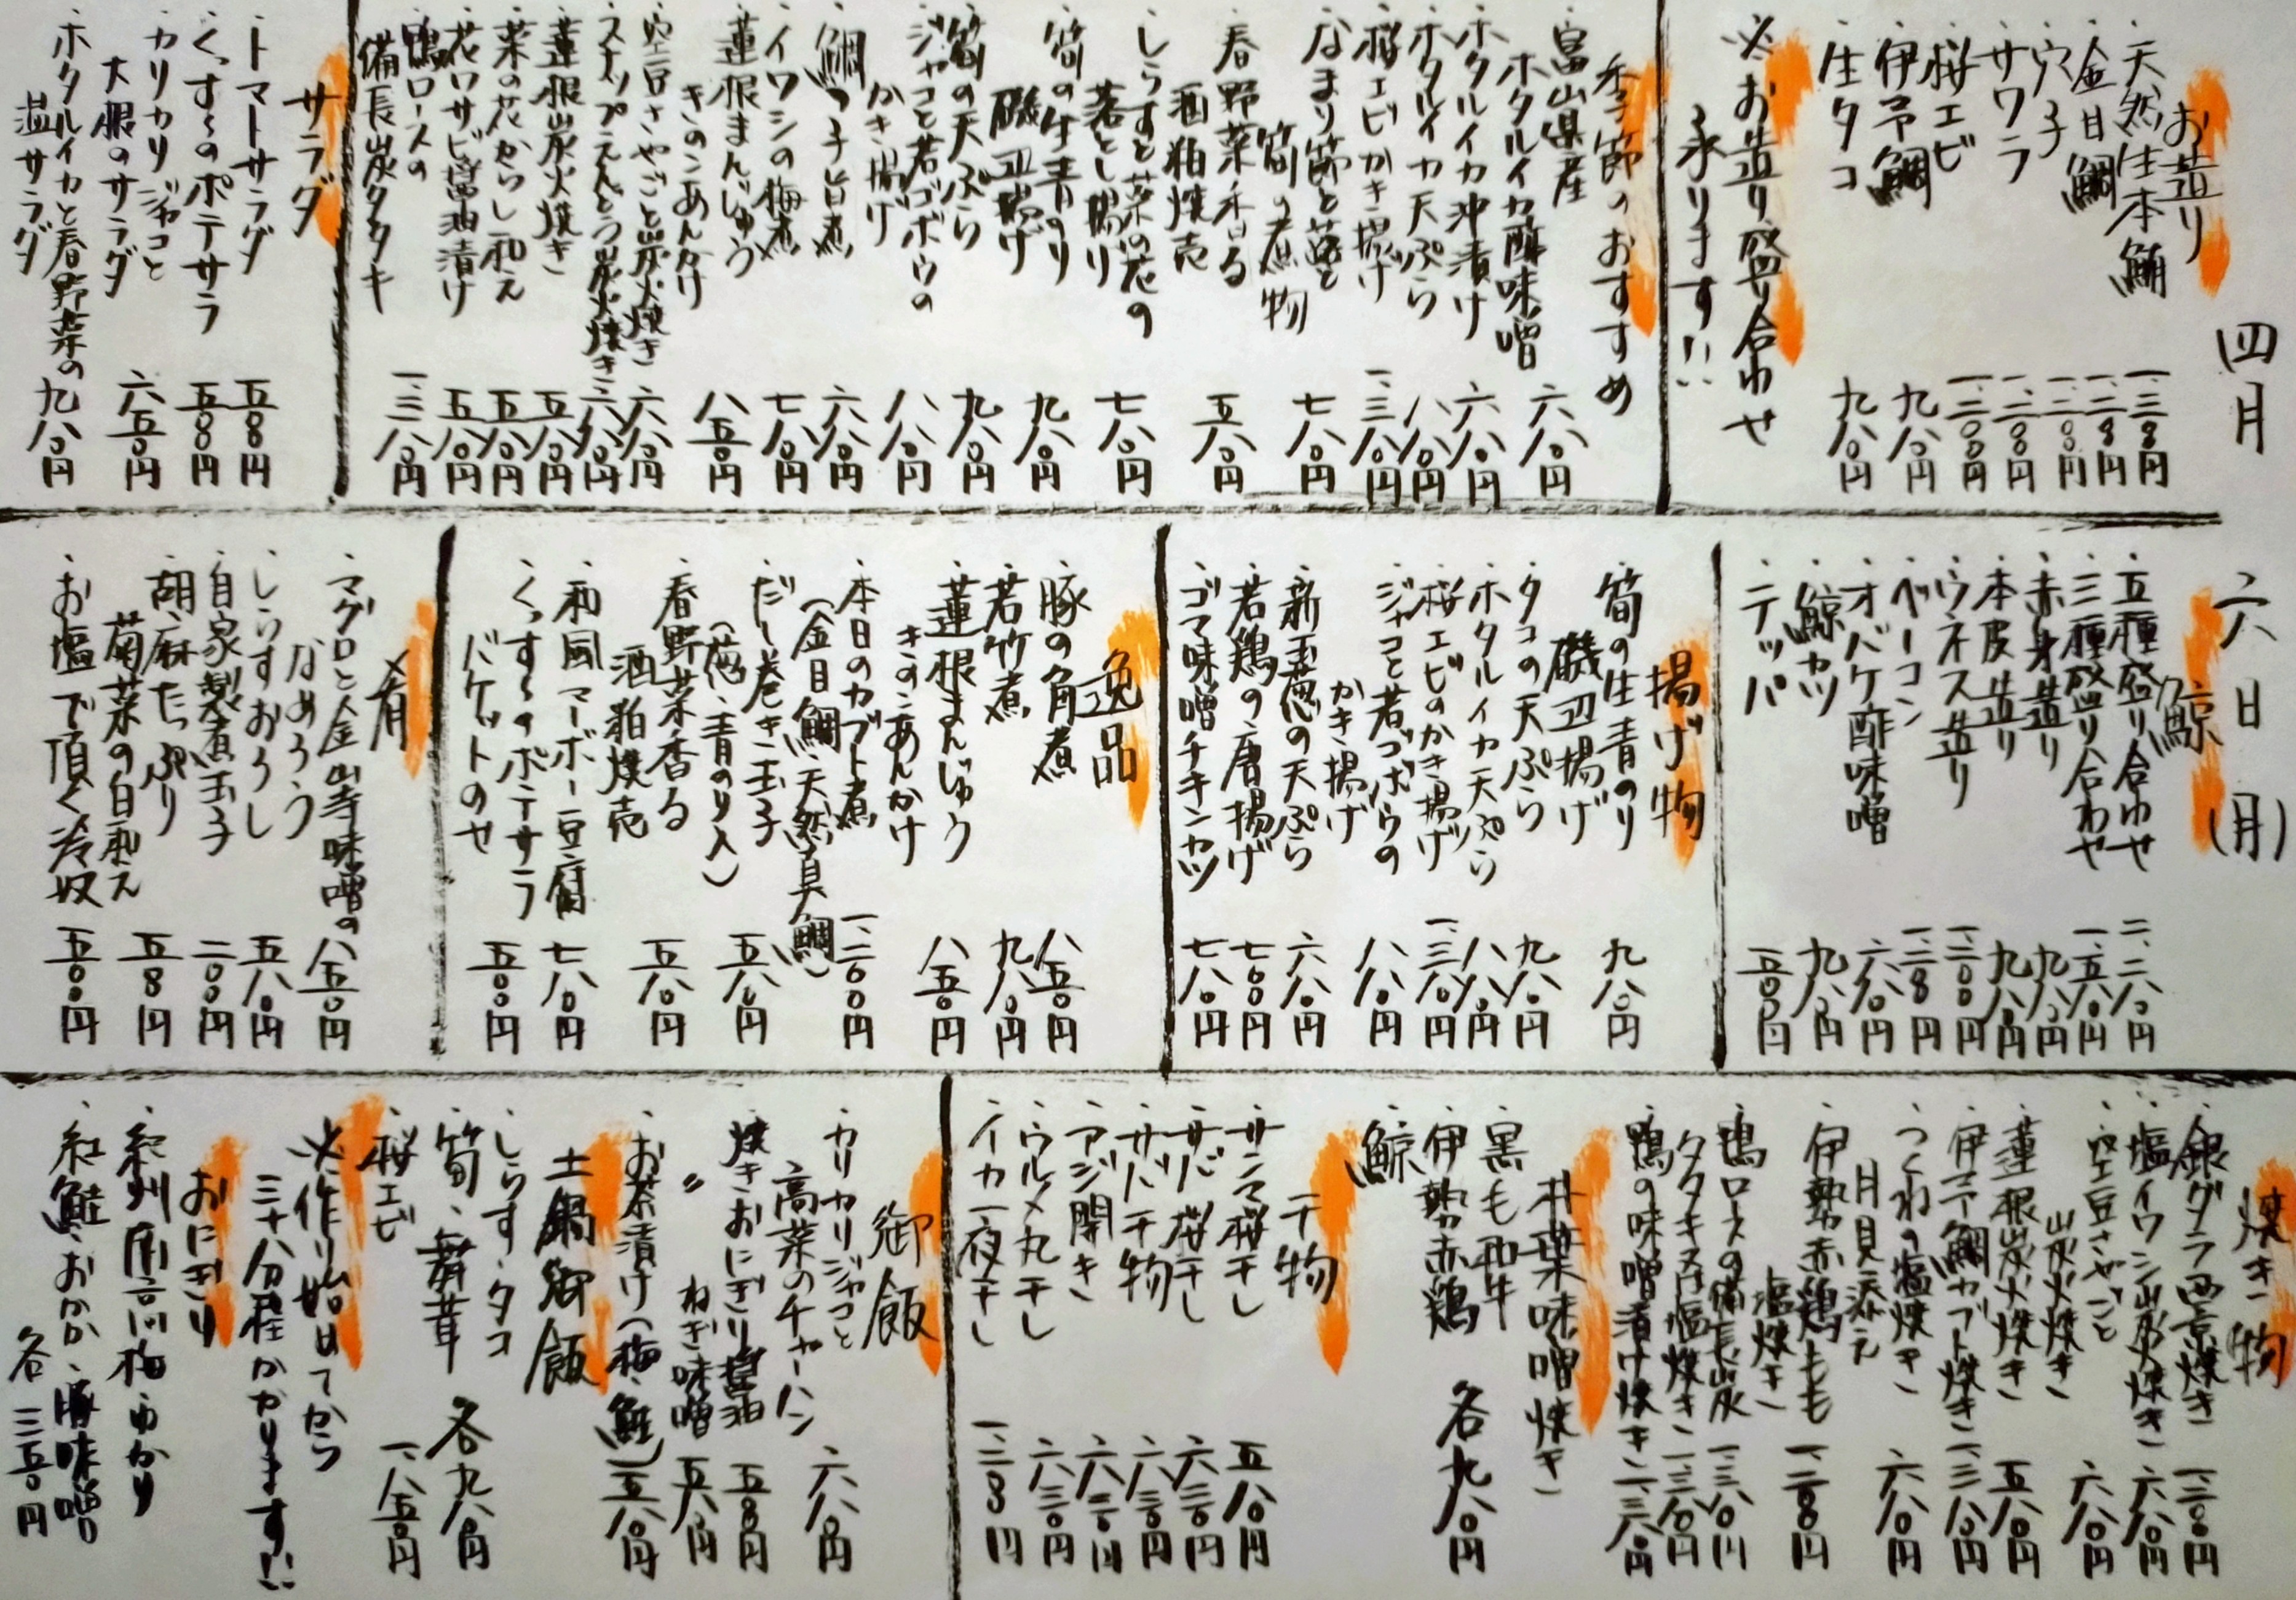 四月
六日(月)
お造り
・天然生本鮪 一、三〇〇円
・金目鯛 一、二〇〇円
・穴子 一、二〇〇円
・サワラ 一、二〇〇円
・桜エビ 一、二〇〇円
・伊予鯛 九八〇円
・生タコ 九八〇円
※お造り盛り合わせ
承ります!!
季節のおすすめ
富山県産
・ホタルイカ酢味噌 六八〇円
・ホタルイカ沖漬け 六八〇円
・ホタルイカ天ぷら 八八〇円
・桜エビかき揚げ 一、三八〇円
・なまり節と蕗と
筍の煮物 七八〇円
・春野菜香る
酒粕焼売 五八〇円
・しらすと菜の花の
落とし揚げ 七八〇円
・筍の生青のり
磯辺揚げ 九八〇円
・筍の天ぷら 九八〇円
・ジャコと若ゴボウの
かき揚げ 八八〇円
・鯛つ子旨煮 六八〇円
・イワシの梅煮 七八〇円
・蓮根まんじゅう
きのこあんかけ 八五〇円
・空豆さやごと炭火焼き 六八〇円
・スナップえんどう炭火焼き 六八〇円
・蓮根炭火焼き 五八〇円
・菜の花からし和え 五八〇円
・花ワサビ醤油漬け 五八〇円
・鴨ロースの
備長炭タタキ 一、三八〇円
サラダ
・トマトサラダ 五〇〇円
・くっすぅのポテサラ 五〇〇円
・カリカリジャコと
大根のサラダ 六五〇円
・ホタルイカと春野菜の
温サラダ 九八〇円
鯨
・五種盛り合わせ 二、二八〇円
・三種盛り合わせ 一、五八〇円
・赤身造り 九八〇円
・本皮造り 九八〇円
・ウネス造り 一、二〇〇円
・ベーコン 一、二〇〇円
・オバケ酢味噌 六八〇円
・鯨カツ 九八〇円
・テッパ 五〇〇円
揚げ物
・筍の生青のり
磯辺揚げ 九八〇円
・タコの天ぷら 九八〇円
・ホタルイカ天ぷら 八八〇円
・桜エビのかき揚げ 一、三八〇円
・ジャコと若ゴボウの
かき揚げ 八八〇円
・新玉葱の天ぷら 六八〇円
・若鶏の唐揚げ 七〇〇円
・ゴマ味噌チキンカツ 七八〇円
逸品
・豚の角煮 八五〇円
・若竹煮 九八〇円
・蓮根まんじゅう
きのこあんかけ 八五〇円
・本日のカブト煮
(金目鯛、天然真鯛) 一、二〇〇円
・だし巻き玉子
(葱、青のり入) 五八〇円
・春野菜香る
酒粕焼売 五八〇円
・和風マーボー豆腐 七八〇円
・くっすぅのポテサラ
バケットのせ 五〇〇円
肴
・マグロと金山寺味噌の
なめろう 八五〇円
・しらすおろし 五八〇円
・自家製煮玉子 二〇〇円
・胡麻たっぷり
菊菜の白和え 五〇〇円
・お塩で頂く冷奴 五〇〇円
焼き物
・銀ダラ西京焼き 一、三〇〇円
・塩イワシ炭火焼き 六八〇円
・空豆さやごと
炭火焼き 六八〇円
・蓮根炭火焼き 五八〇円
・伊予鯛カブト焼き 一、三八〇円
・つくねの塩焼き
月見添え 六八〇円
・伊勢赤鶏もも
塩焼き 一、二〇〇円
・鴨ロースの備長炭
タタキ 一、三八〇円
塩焼き 一、三八〇円
・鴨の味噌漬け焼き 一、三八〇円
朴葉味噌焼き
・黒毛和牛
・伊勢赤鶏
・鯨
各九八〇円
干物
・サンマ桜干し 五八〇円
・サバ桜干し 六三〇円
・サバ干物 六三〇円
・アジ開き 六三〇円
・ウルメ丸干し 六三〇円
・イカ一夜干し 一、二〇〇円
御飯
・カリカリジャコと
高菜のチャーハン 六八〇円
・焼きおにぎり醤油 五〇〇円
〃 ねぎ味噌 五八〇円
・お茶漬け(梅、鮭) 五八〇円
土鍋御飯
・しらす・タコ
・筍、舞茸 各九八〇円
・桜エビ 一、八五〇円
※作り始めてから
三十分程かかります!!
おにぎり
・紀州南高梅・ゆかり
・紅鮭・おかか・豚味噌
各 三五〇円